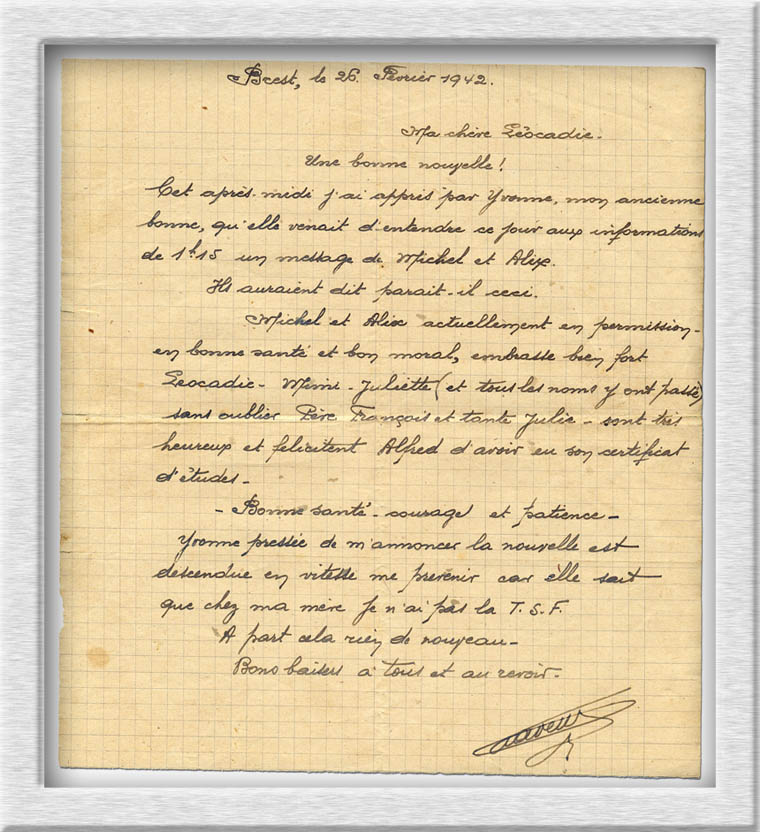 Brest, le 26. Février 1942.
Ma chère Léocadie.
Une bonne nouvelle!
Cet après-midi j'ai appris par Yvonne, mon ancienne
bonne, qu'elle venait d'entendre ce jour aux informations
de 1h15 un message de Michel et Alix.
Ils auraient dit parait-il ceci.
Michel et Alix actuellement en permission-
en bonne santé et bon moral, embrasse bien fort
Léocadie - Mimi - Juliette (et tous les noms y ont passé)
sans oublier Père François et tante Julie - sont très
heureux et felicitent Alfred d'avoir eu son certificat
d'études -
- Bonne santé - courage et patience -
Yvonne pressée de m'annoncer la nouvelle est
descendue en vitesse me prévenir car elle sait
que chez ma mère je n'ai pas la T.S.F.
A part cela rien de nouveau -
Bons baisers a tous et au revoir -